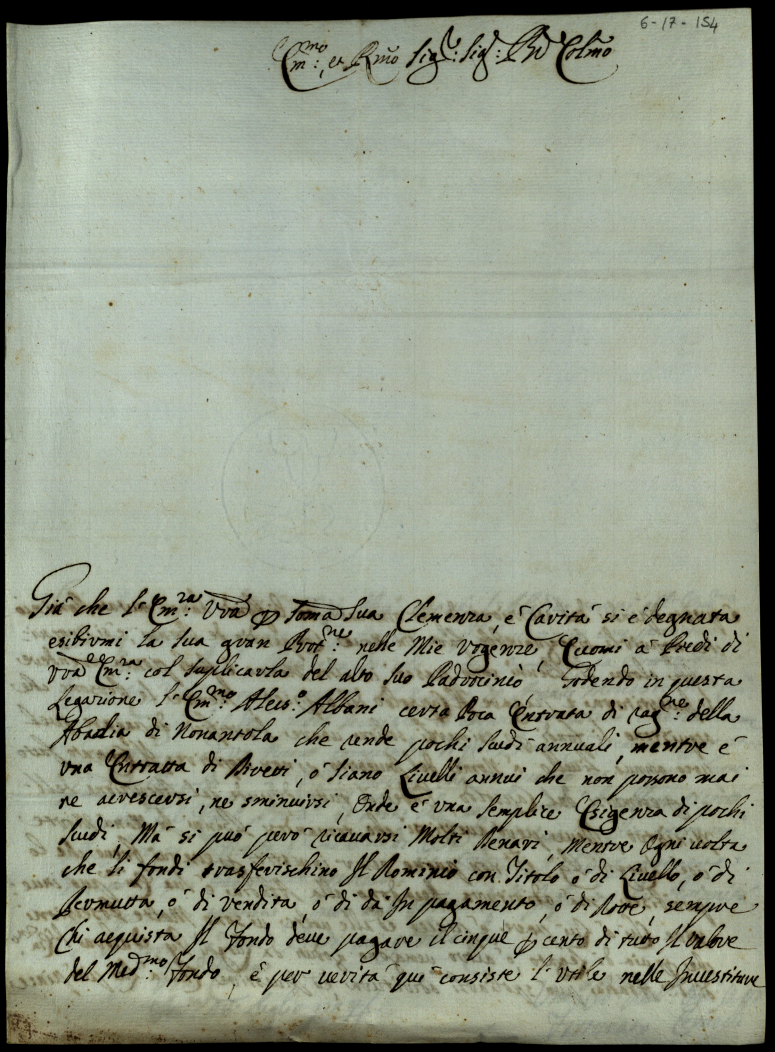 6-17-154
Em:mo, et Rmo Sig:r Sig:r Pne Colmo
Già che l'Em:ra Vra p somma sua Clemenza, e Carità si è degnata
esibirmi la sua gran Prot:ne nelle Mie Urgenze, Eccomi à Piedi di
Vra Em:ra col suplicarla del alto suo Padrocinio. Godendo in questa
Legazione l'Em:mo Aless:o Albani certa Poca Entrata di rag:ne della
Abadia di Nonantola che rende pochi scudi annuali, mentre è
una Entratta di Livelli annui che non possono mai
ne acrescersi, ne sminuirsi, Onde è una semplice Esigenza di pochi
scudi, Mà si può però ricavarsi Molti Denari, mentre Ogni volta
che li fondi trasferischino Il Dominio con Titolo ò di Livello, ò di
Permutta, ò di vendita, ò di da In pagamento, ò di Dote, sempre
Chi acquista Il Fondo deve pagare il cinque p cento di tutto Il valore
del Med:mo Fondo, è per verità quì consiste l'Utile nelle Investiture